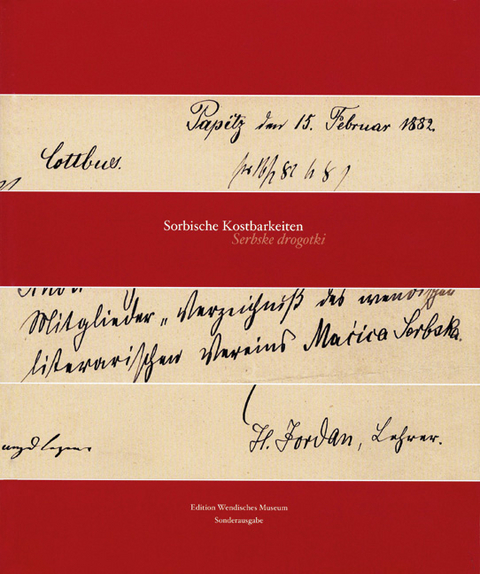 Papitz den 15. Februar 1882.
Cottbus.
Sorbische Kostbarkeiten
Serbske drogotki
Mitglieder-Verzeichniß des wendischen
literarischen Vereins Maćica Serbska.
H. Jordan, Lehrer.
Edition Wendisches Museum
Sonderausgabe